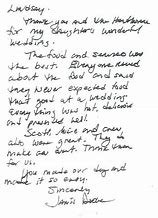 Lindsay,
Thank you and Van
for my daughter's wonderful
wedding.
The food and service was
the best. Everyone raved
about the food and said
they never expected food
that good at a wedding
Everything was hot, delicious
and presented well.
Scott, Mike and crew
also were great. They do
make an event. Thank them
for us.
You made our day and
made it so easy.
Sincerely
Janis